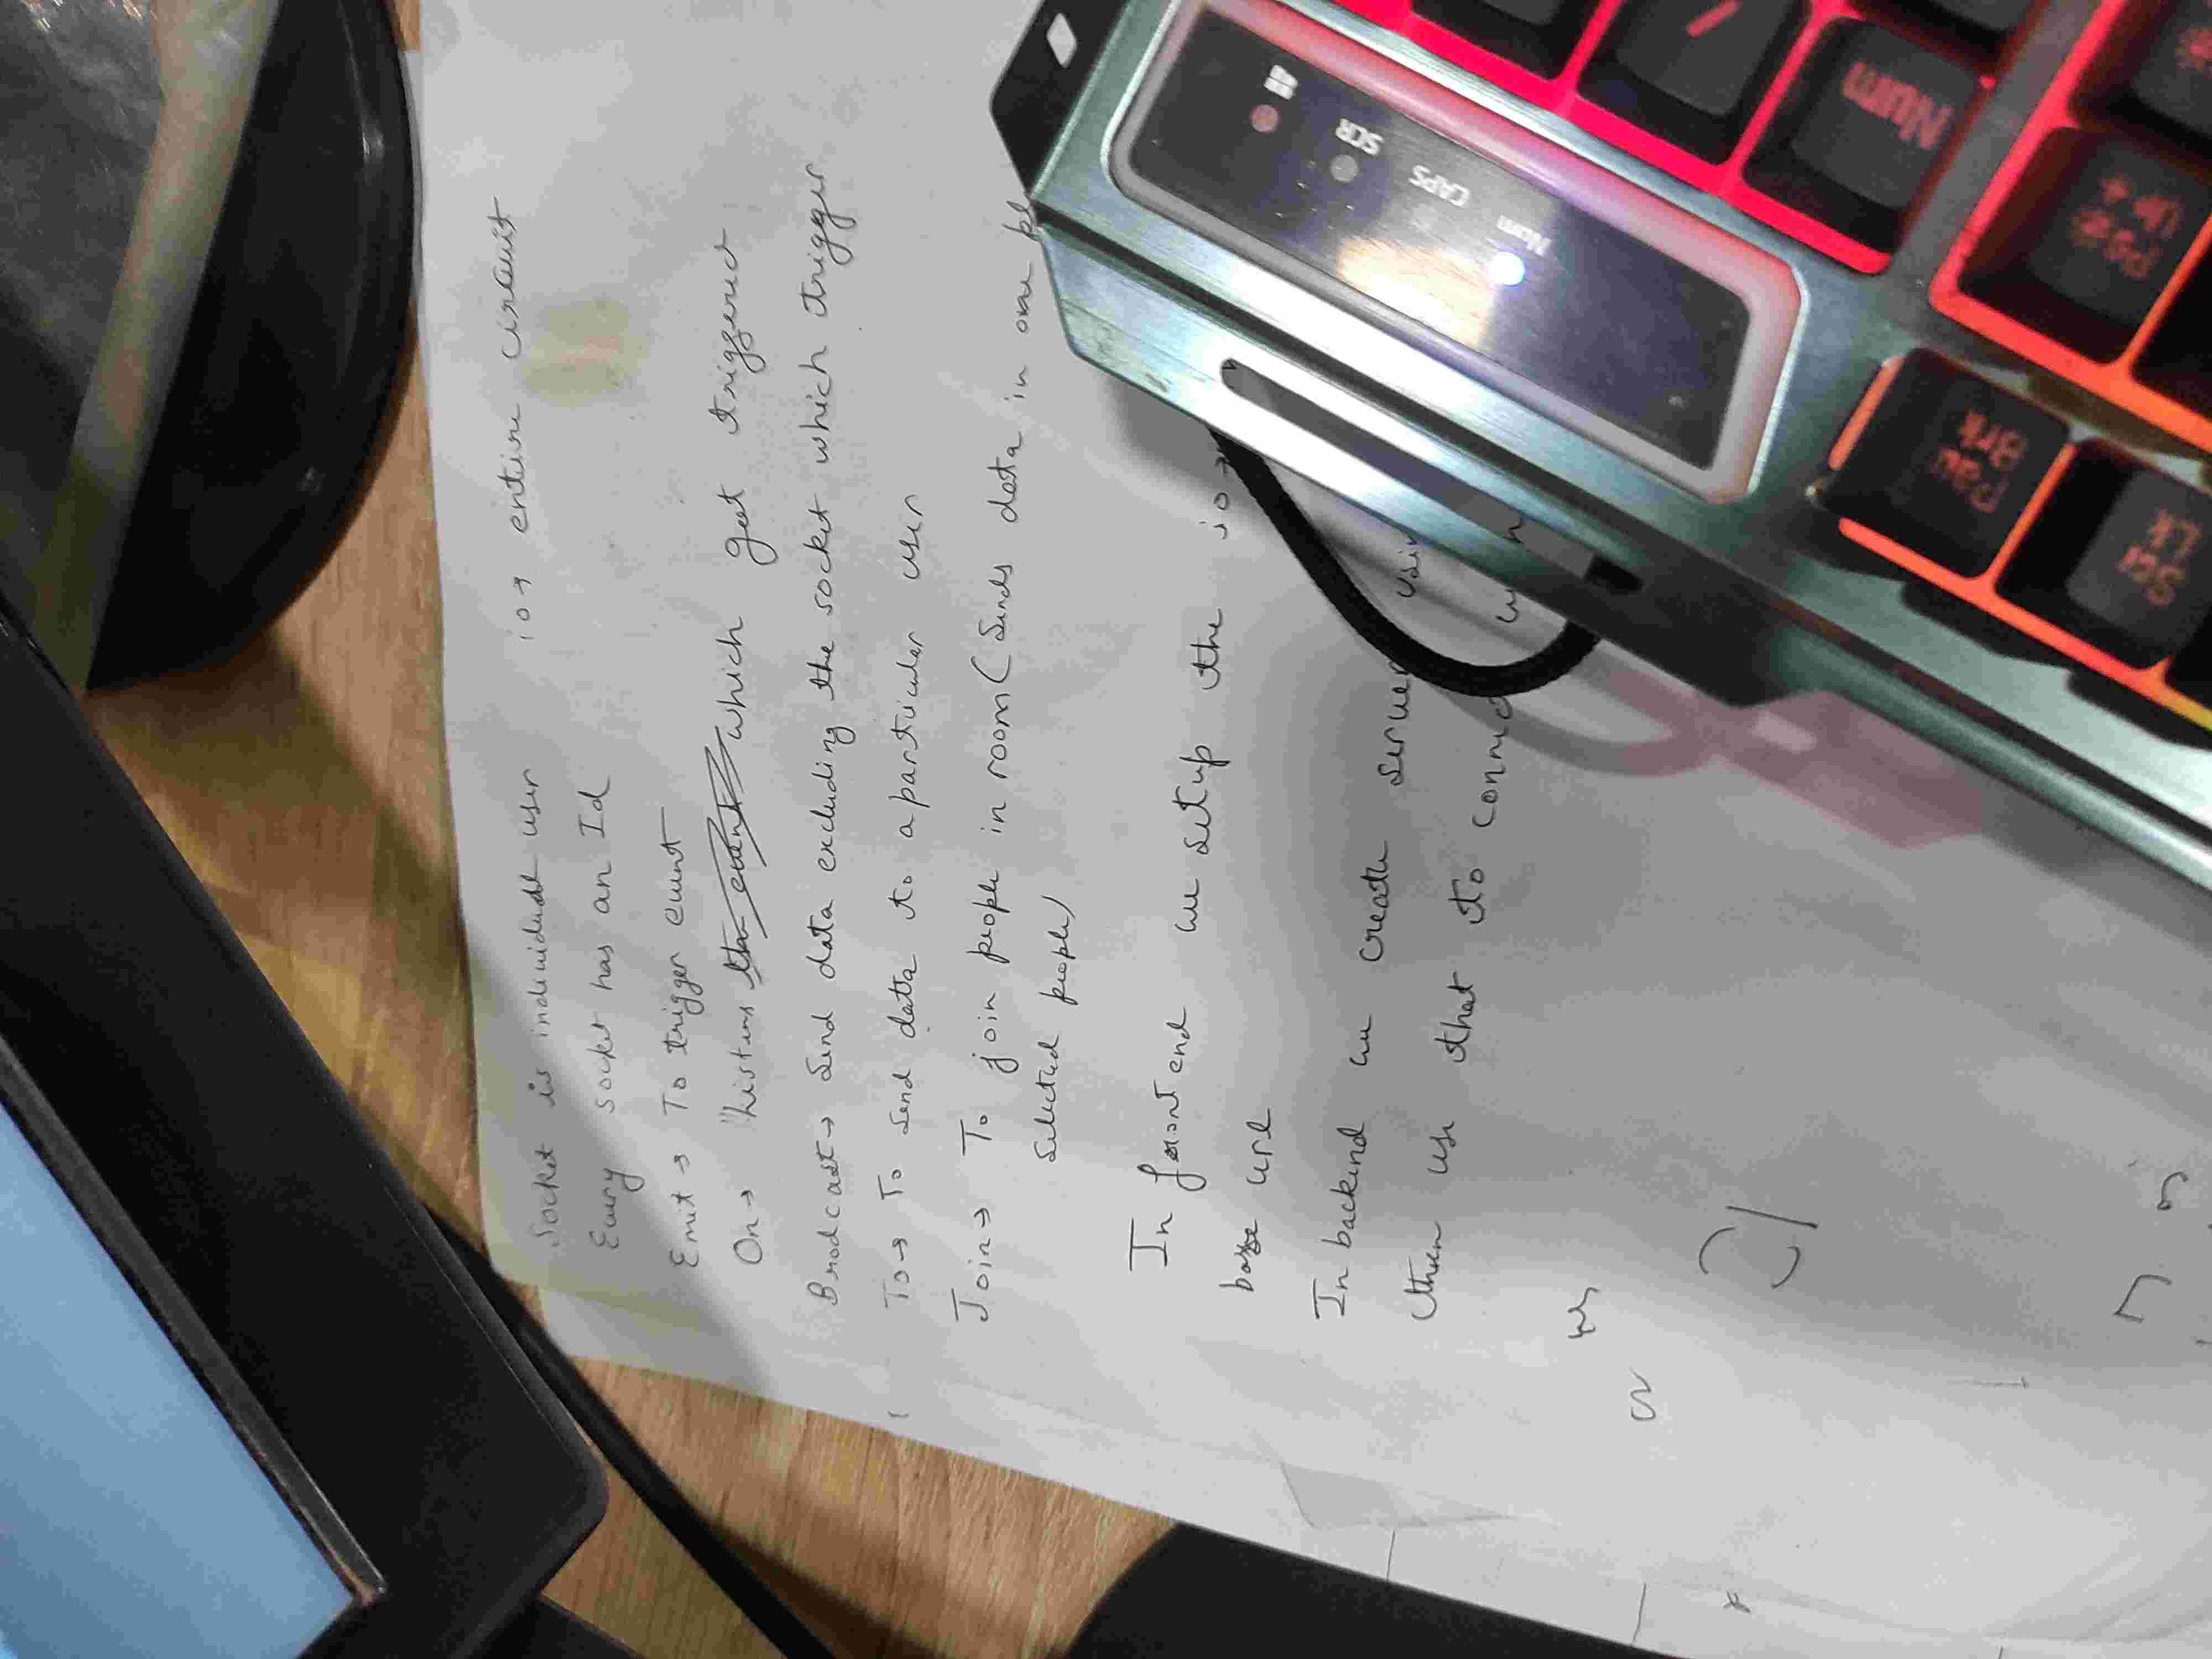 Socket is individual user io → entire circuit
Every socket has an Id
Emit → To trigger event
On → listens the event which get triggered
Broadcast → Send data excluding the socket which trigger
To → To send data to a particular user
Join → To join people in room (Sends data in one
selected people)
In frontend we setup the io →
base url
In backend we create server
then use that to
Scr
Lk
Pau
Brk
Num
CAPS
SCR
Num
/